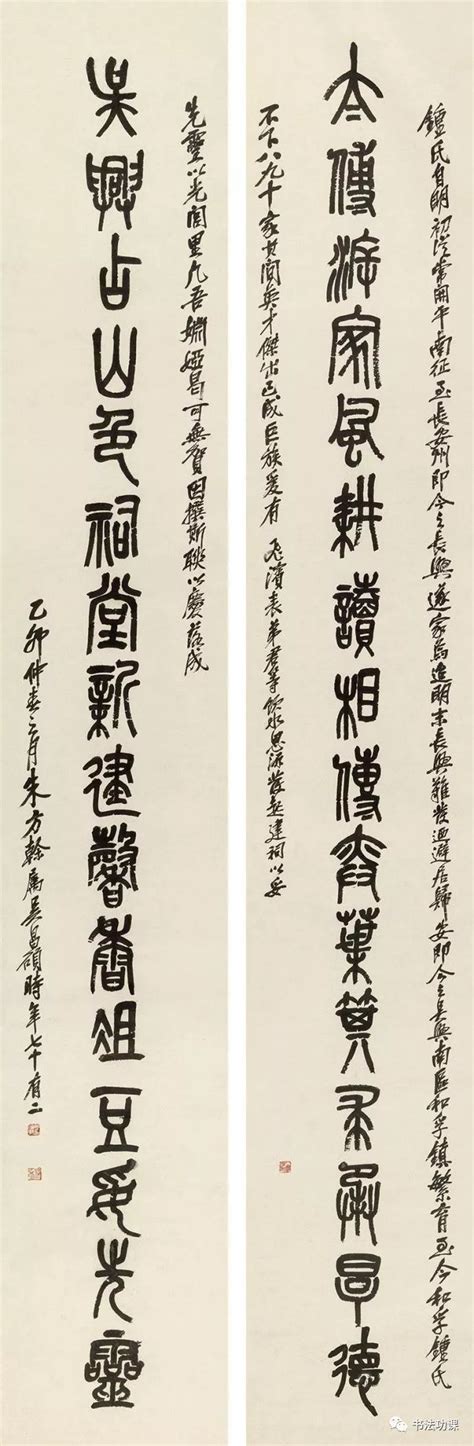 鍾氏自明初從常開平南征至長安州即今之長興遂家焉迨明末長興難發迺避居歸安即今之吳興南區和孚鎮繁育至今和孚鍾氏
太傅游家風耕讀相傳奕葉箕裘承德
不下八九十家其間英才傑出已成巨族爰有濱表弟君等飲水思源發起建祠以妥
先靈以光閭里凡吾姻婭曷可無賀因撰斯聯以慶落成
吳興占山色祠堂新建馨香俎豆妥先靈
乙卯仲春之月朱方幹屬吳昌碩時年七十有二
书法功课